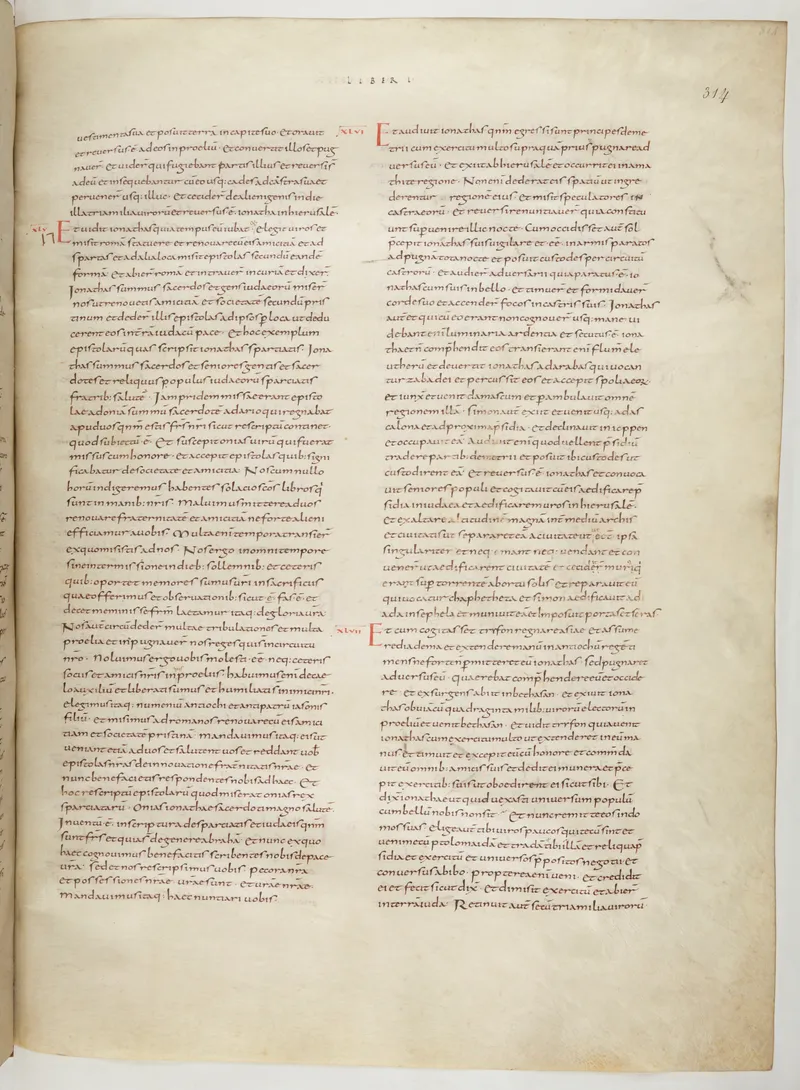 LIBER I
314
uestimenta sua et posuit terrā in capite suo et orauit
et reuersus ē ad eos in proeliū et conuertit illos et pug
nauer̄ et uider̄ qui fugiebant partis illius et reuersi s̄
ad eū et insequebantur cū eo usq; cades ad castra sua et
peruener̄ usq; illuc et cecider̄ de alienigenis in die
illa tria milia uirorū et reuersus ē ionathas in hierusalē
XLV Et uidit ionathas quia tempus eū iubat et elegit uiros et
misit romā statuere et renouare cū eis amicitiā et ad
spartas et ad alia loca misit epistolas secundū eandē
formā et abier̄ romā et intrauer̄ in curiā et dixer̄
Ionathas summus sacerdos et gens iudaeorū miser̄
nos ut renouetis amicitiā et societatē secundū pris
tinum et deder̄ illis epistolas ad ipsos p loca ut dedu
cerent eos in trā iuda cū pace Et hoc exemplum
epistolarū quas scripsit ionathas spartiatis Iona
thas summus sacerdos et seniores gentis et sacer
dotes et reliquus populus iudaeorū spartiatis
fratrib; salutē Iam pridem missae erant episto
lae ad oniā summū sacerdotē ad ario qui regnabat
apud uos qnm̄ estis frs̄ nri sicut rescriptū continet
quod subiectū ē Et suscepit onias uirū qui fuerat
missus cum honore et accepit epistolas quib; signi
ficabatur de societate et amicitia Nos cum nullo
horū indigeremus habentes solacio scos libros q̄
sunt in manib; nr̄is Maluimus mittere ad uos
renouare fraternitatē et amicitiā ne forte alieni
efficiamur a uobis Multa enī tempora transier̄
ex quo misistis ad nos Nos ergo in omni tempore
sine intermissione in dieb; sollemnib; et ceteris
quib; oportet memores sumus ūri in sacrificiis
quae offerimus et obseruationib; sicut ē fas ē et
decet meminisse frm̄ Laetamur itaq; de gloria ūra
Nos aut̄ circūdeder̄ multae tribulationes et multa
proelia et inpugnauer̄ nos reges qui s̄ in circuitu
nr̄o Noluimus ergo uobis molesti ēē neq; ceteris
sociis et amicis nr̄is in proeliis habuimus enī de cae
lo auxiliū et liberati sumus et humiliati s̄ inimici nr̄i
elegimus itaq; numeniū antiochi et antipatrū iasonis
filiū et misimus ad romanos renouare cū eis amici
tiam et societatē pristinā mandauimus itaq; eis ut
ueniant etiā ad uos et salutent uos et reddant uob
epistolas nr̄as de innouatione fraternitatis nr̄ae et
nunc benefacietis respondentes nobis ad haec Et
hoc rescriptū epistolarū quod miserat oniae rex
spartiatarū Onias ionathae sacerdoti magno salutē
Inuentū ē in scriptura de spartiatis et iudaeis qnm̄
sunt frs̄ et quia s̄ de genere abrahā et nunc ex quo
haec cognouimus benefacitis scribentes nobis de pace
ur̄a sed et nos rescripsimus uobis pecora nr̄a
et possessiones nr̄ae ur̄ae sunt et ur̄ae nr̄ae
mandauimus itaq; haec nuntiari uobis
XLVI Et audiuit ionathas qnm̄ egressi sunt principes deme
trii cum exercitu multo supra quā prius pugnare ad
uersus eū et exiit ab hierusalē et occurrit eis in ama
thite regione Non enī dederat eis spatiū ut ingre
derentur regionē eius et misit speculatores in
castra eorū et reuersi renuntiauer̄ quia constitu
unt supuenire illi nocte Cum occidisset aut̄ sol
pcepit ionathas suis uigilare et ēē in armis paratos
ad pugnā tota nocte et posuit custodes per circuitū
castrorū et audier̄ aduersarii quia paratus ē io
nathas cum suis in bello et timuer̄ et formidauer̄
corde suo et accender̄ focos in castris suis Ionathas
aut̄ et qui cū eo erant non cognouer̄ usq; mane ui
debant enī luminaria ardentia et secutus ē iona
thas et n̄ comphendit eos transierant enī flumē ele
utherū et deuertit ionathas ad arabas qui uocan
tur zabadei et percussit eos et accepit spolia eoꝝ
et iunxit et uenit damascum et pambulauit omnē
regionem illā simon aut̄ exiit et uenit usq; ad as
calona et ad proxima psidia et declinauit in ioppen
et occupauit eā Audiuit enī quod uellent psidiū
tradere partib; demetrii et posuit ibi custodes ut
custodirent eā Et reuersus ē ionathas et conuoca
uit seniores populi et cogitauit cū eis aedificare p
sidia in iudaea et aedificare muros in hierusalē
Et exaltare altitudinē magnā int̄ mediū arcis
et ciuitatis ut separaret eā a ciuitate ut ēēt ipsa
singulariter et neq; emant neq; uendant et con
uener̄ ut aedificarent ciuitatē et cecidet̄ mur' q
erat sup torrentē ab ortu solis et reparauit eū
qui uocatur chaphetheta et simon aedificauit ad
ada in sephela et muniuit eā et imposuit portas et seras
XLVII Et cum cogitasset trifon regnare asiae et assume
re diadema et extendere manū in antiochū regē ti
mens ne forte n̄ pmitteret eū ionathas sed pugnaret
aduersus eū quaerebat comphendere eū et occide
re et exsurgens abiit in bethsan et exiuit iona
thas obuiā cū quadraginta milib; uirorū electorū in
proeliū et uenit bethsan Et uidit trifon quia uenit
ionathas cum exercitu multo ut extenderet in eū ma
nus et timuit et excepit eū cū honore et commda
uit eū omnib; amicis suis et dedit ei munera et pce
pit exercitib; suis ut oboedirent ei sicut sibi Et
dixit ionathae ut quid uexasti uniuersum populū
cum bellū nobis non sit Et nunc remitte eos in do
mos suas elige aut̄ tibi uiros paucos qui tecū sint et
ueni mecū ptolomaidā et tradā tibi illā et reliqua p
sidia et exercitū et uniuersos p̄positos negotii et
conuersus abibo propterea enī ueni Et credidit
ei et fecit sicut dix̄ Et dimisit exercitū et abier̄
in terrā iuda Retinuit aut̄ secū tria milia uirorū